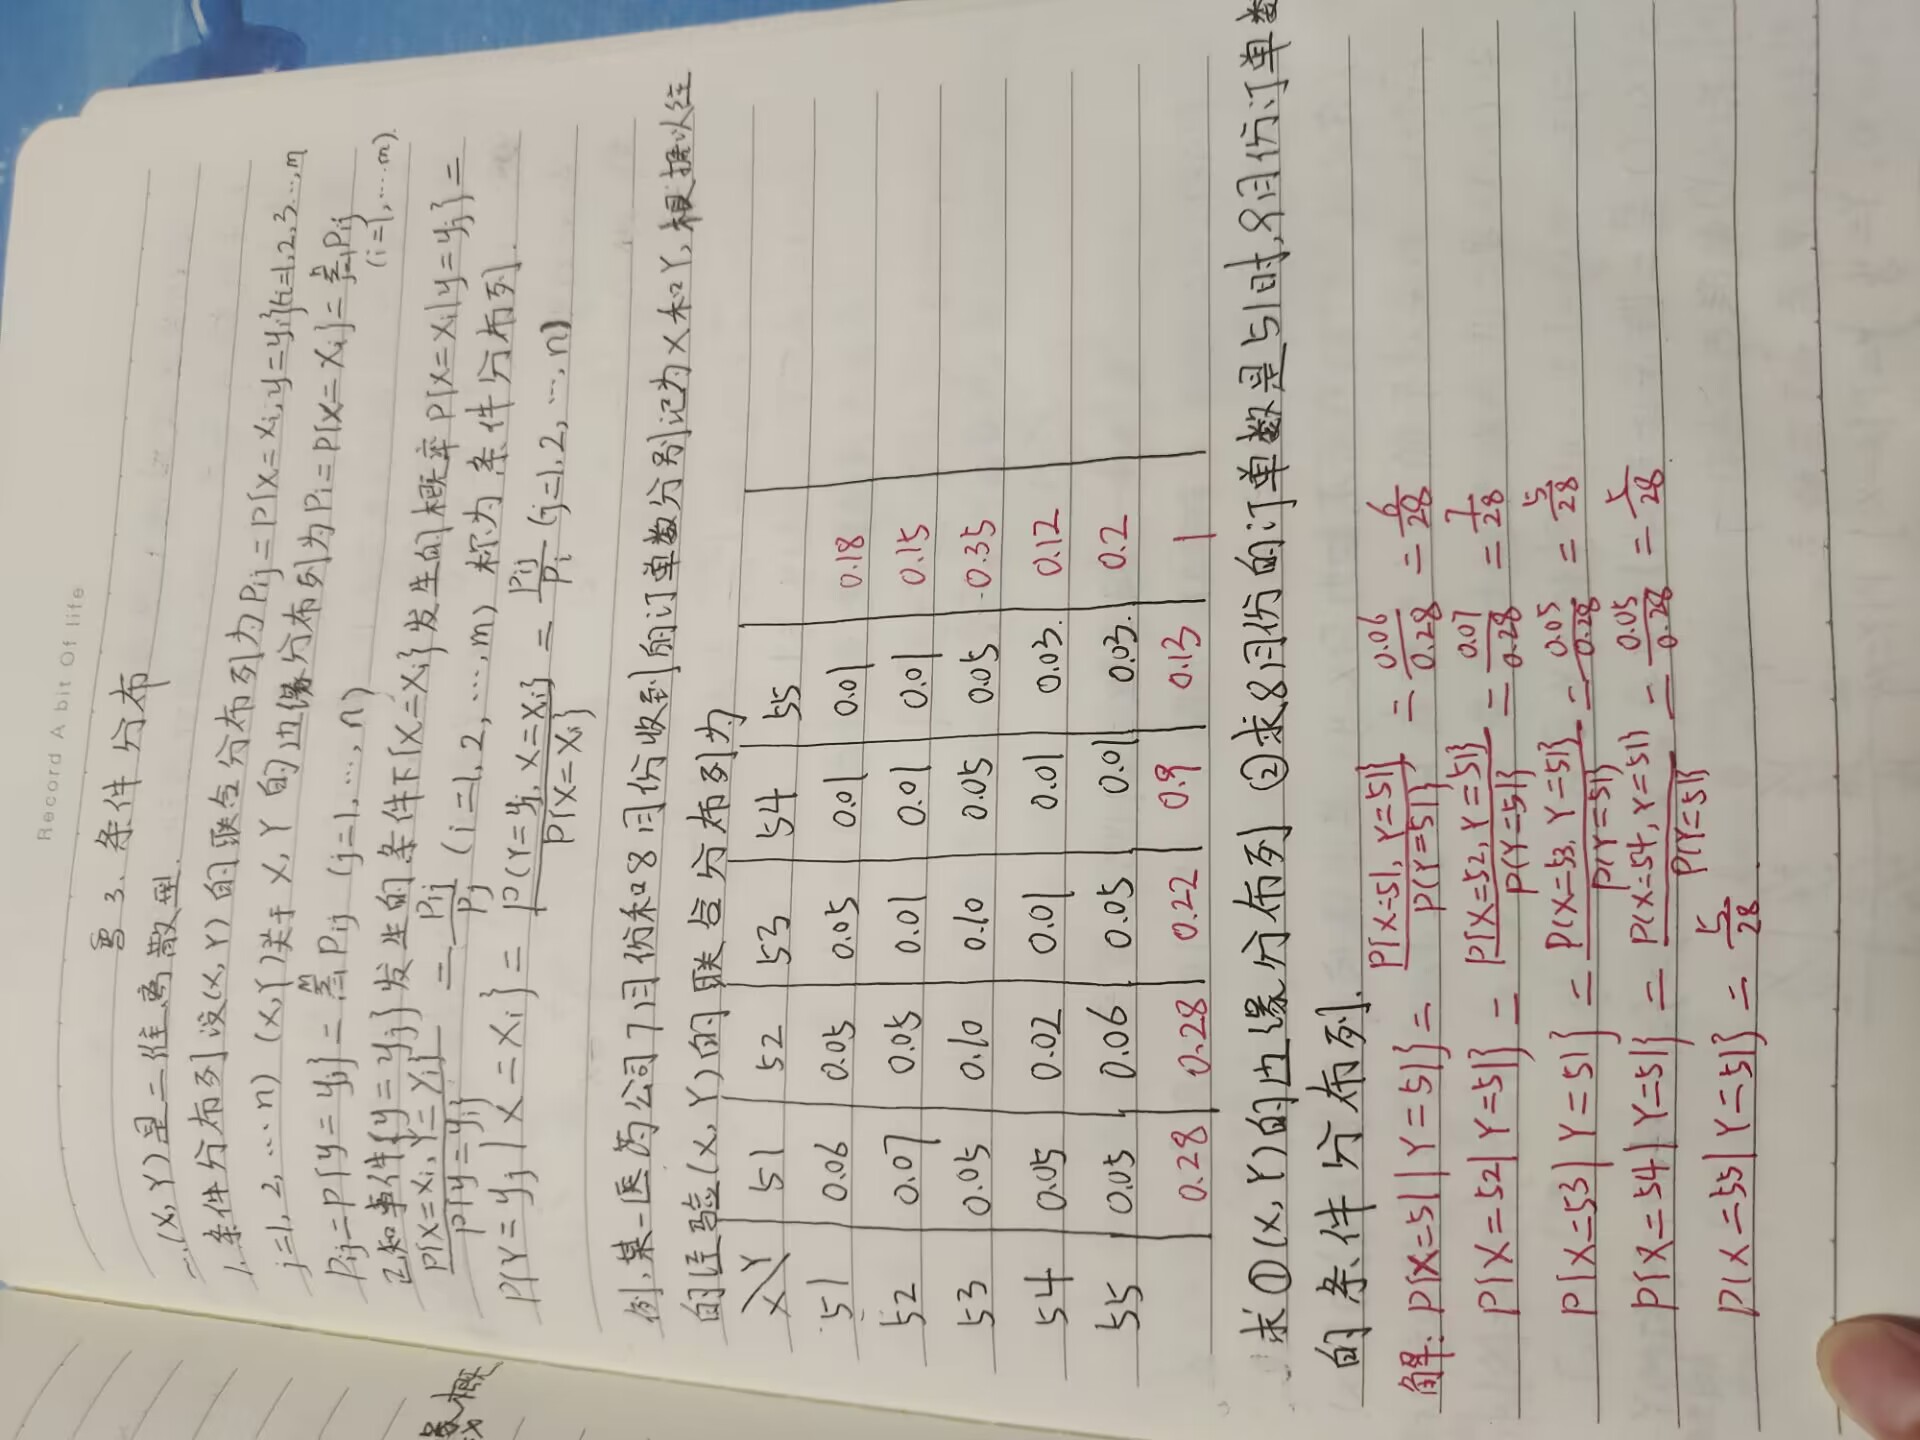 Record A bit Of life
3. 条件分布
一.(X,Y)是二维离散型.
1.条件分布列 设(X,Y)的联合分布列为Pij=P{X=xi,y=yj}(i=1,2,3…,m
j=1,2,…n) (X,Y)关于X,Y的边缘分布列为Pi=P{X=xi}=Σj=1^n Pij (i=1,…m).
Pj=P{y=yj}=Σ Pij (j=1,…,n)
已知事件{y=yj}发生的条件下{X=xi}发生的概率P{X=xi|y=yj}=
P{X=xi,Y=yj}/P{y=yj} = Pij/Pj (i=1,2,…,m) 称为条件分布列.
P{Y=yj|X=xi}=P(Y=yj,X=xi}/P{X=xi} = Pij/Pi (j=1,2,…,n)
例,某一医药公司7月份和8月份收到的订单数分别记为X和Y,根据以往
的经验(X,Y)的联合分布列为
X\Y 51 52 53 54 55
51 0.06 0.05 0.05 0.01 0.01 0.18
52 0.07 0.05 0.01 0.01 0.01 0.15
53 0.05 0.10 0.10 0.05 0.05 0.35
54 0.05 0.02 0.01 0.01 0.03. 0.12
55 0.05 0.06 0.05 0.01 0.03. 0.2
0.28 0.28 0.22 0.9 0.13 1
求①(X,Y)的边缘分布列 ②求8月份的订单数是51时,9月份订单数
的条件分布列.
解: P{X=51|Y=51}= P{X=51,Y=51}/P(Y=51} = 0.06/0.28 = 6/28
P{X=52|Y=51}= P{X=52,Y=51}/P(Y=51} = 0.07/0.28 = 7/28
P{X=53|Y=51}= P(X=53,Y=51}/P(Y=51} = 0.05/0.28 = 5/28
P{X=54|Y=51}= P(X=54,Y=51}/P{Y=51} = 0.05/0.28 = 5/28
P{X=55|Y=51}= 5/28